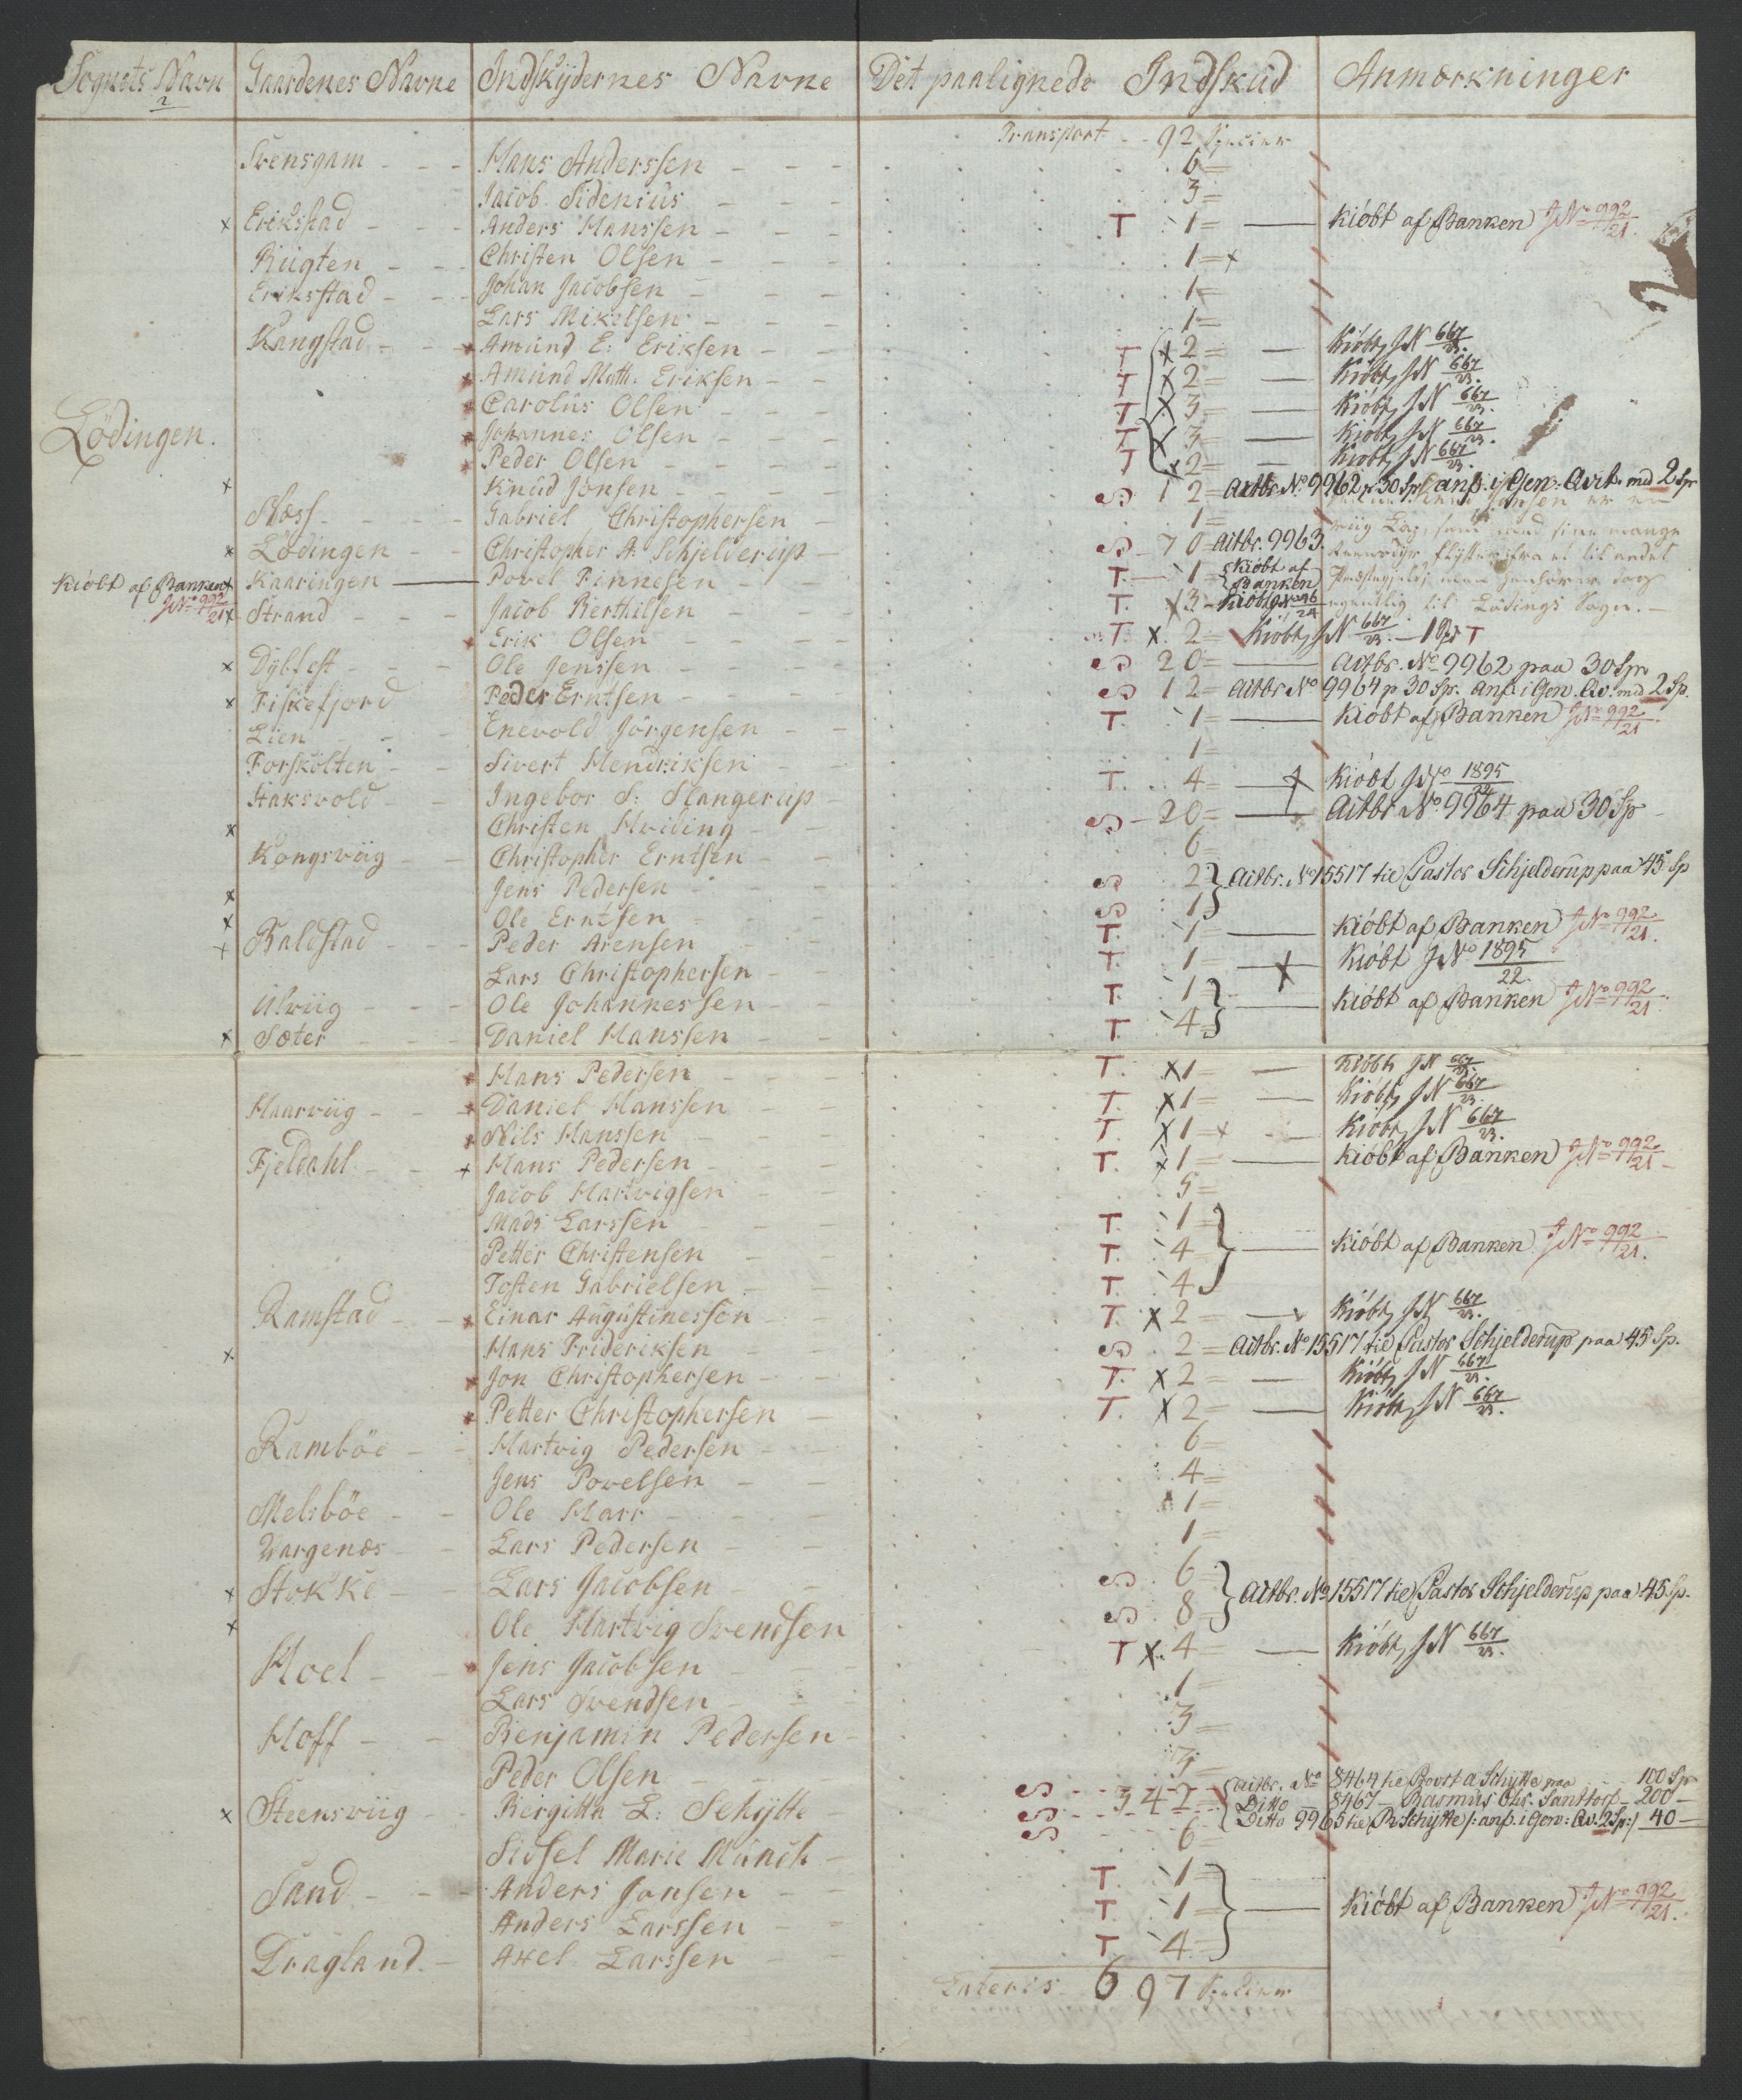 Sognets Navn Gaardenes Navne Indskydernes Navne Det paalignede Indskud Anmærkninger
Transport 92 Specier
Svensgam Hans Anderssen 6
Jacob Sidenius 3
x Eriksstad Anders Hanssen T 1 Kiöbt af Banken JNo 992/21
Christen Olsen 1 x
Eriksstad Johan Jacobsen 1
Lars Mikelsen 1
Kangstad Amund E: Eriksen T x 2 Kiöbt JN 667/23.
Amund Math. Eriksen T x 2 Kiöbt JN 667/23.
Carolus Olsen T x 3 Kiöbt JN 667/23.
Lödingen. Johannes Olsen T x 3 Kiöbt JN 667/23.
Peder Olsen T x 2 Kiöbt JN 667/23.
x Knud Jonsen S 12 Actbr. No 9962 p 30 Sp. anf. i Gen. Avt. md 2 Sp
Næss Gabriel Christophersen 1
x Lödingen Christopher A. Schjelderup S 70 Actbr. 9963.
Kiöbt af Banken JNo 992/21 x Kaaringen Povel Finnesen T. 1 Kiöbt af Banken
x Strand Jacob Berthilsen T. x 3 Kiöbt
egentlig til Lödings Sogn.
Erik Olsen T. x 2 Kiöbt JN 667/23. 1 Sp T
x Dybfest Ole Jenssen S 20 Actbr. No 9962 paa 30 Sp
x Fiskefjord Peder Erntsen S 12 Actbr No 9964 p 30 Sp. anf. i Gen. Av. md 2 Sp.
Lien Enevold Jörgensen T. 1 Kiöbt af Banken JNo 992/21
Forskolten Sivert Hendriksen 1
Haksvold Ingebor S: Slangerup T. 4 x Kiöbt JNo 1895/22
x Christen Hviding S 20 Actbr No 9964 paa 30 Sp
Kongsviig Christopher Erntsen 6
x Jens Pedersen S 2 Actbr. No 15517 til Pastor Schjelderup paa 45 Sp
x Ole Erntsen S 1
x Baldstad Peder Arensen T. 1 Kiöbt af Banken JNo 992/21.
Lars Christophersen T. 1 x Kiöbt JNo 1895/22.
Ulviig Ole Johannessen T. 1 Kiöbt af Banken JNo 992/21
x Sæter Daniel Hanssen T. 4
Hans Pedersen T. x 1 Kiöbt JN 667/23.
Haarviig Daniel Hanssen T. x 1 Kiöbt JN 667/23.
Nils Hanssen T. x 1 x Kiöbt JN 667/23.
Fjeldahl x Hans Pedersen T. x 1 Kiöbt af Banken JNo 992/21
Jacob Hartvigsen 5
Mads Larssen T. 1
Petter Christensen T. 4 Kiöbt af Banken JNo 992/21.
Tosten Gabrielsen T. 4
Ramstad Einar Augustinessen T. x 2 Kiöbt JN 667/23.
x Hans Frideriksen S 2 Actbr. No 15517 til Pastor Schjelderup paa 45 Sp.
Jon Christophersen T. x 2 Kiöbt JN 667/23.
Petter Christophersen T. x 2 Kiöbt JN 667/23.
Ramböe Hartvig Pedersen 6
Jens Povelsen 4
Melsböe Ole Harr 1
Vargenæs Lars Pedersen 1
x Stokke Lars Jacobsen S 6 Actbr. No 15517 til Pastor Schjelderup paa 45 Sp.
x Ole Hartvig Svendsen S 8
Hoel Jens Jacobsen T x. 4 Kiöbt JN 667/23.
Lars Svendsen 1
Hoff Benjamin Pedersen 3
Peder Olsen 3
x Steensviig Birgitta L: Schytte S 342 Actbr. No 8464 til Provst a Schytte paa 100 Sp
Ditto 8467 Rasmus Chr. Santtorf 200
Ditto 9965 til B Schytte /: anf. i Gen: Av. 2 Sp:/ 40
Sidsel Marie Münch 6
Sand Anders Jonsen T. 1
Anders Larssen T. 1 Kiöbt af Banken JNo 992/21.
Dragland. Axel Larssen T. 4
Lateris 697 Specier